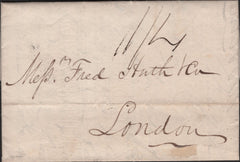 1/1/4
Messrs Fred Huth & Co
London